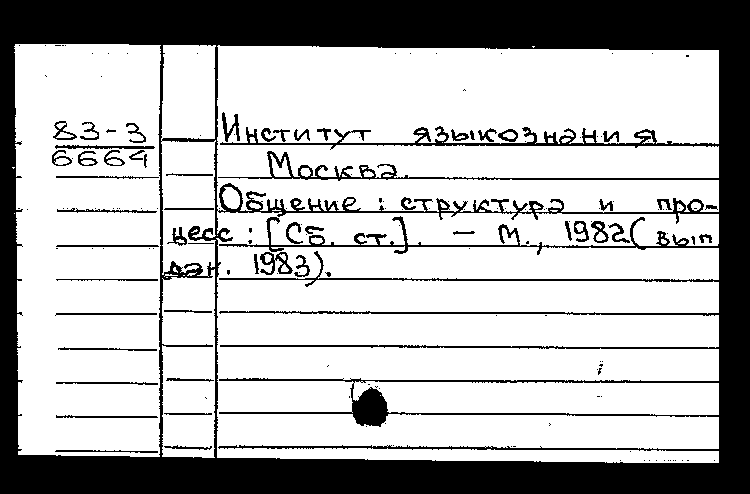 83-3
6664
Институт языкознания.
Москва.
Общение : структура и про-
цесс : [Сб. ст.]. – М., 1982( вып
дан. 1983).